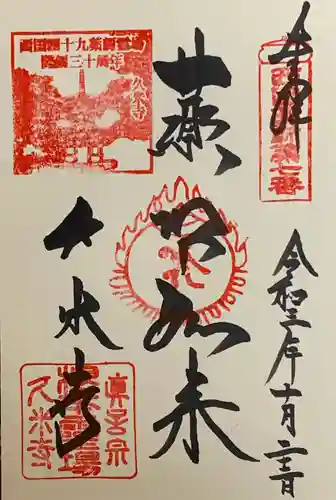 奉拝
第七番
令和三年十月
薬師如来
久米寺
西国四十九薬師霊場
開創三十周年
久米寺
真言宗
霊場
久米寺